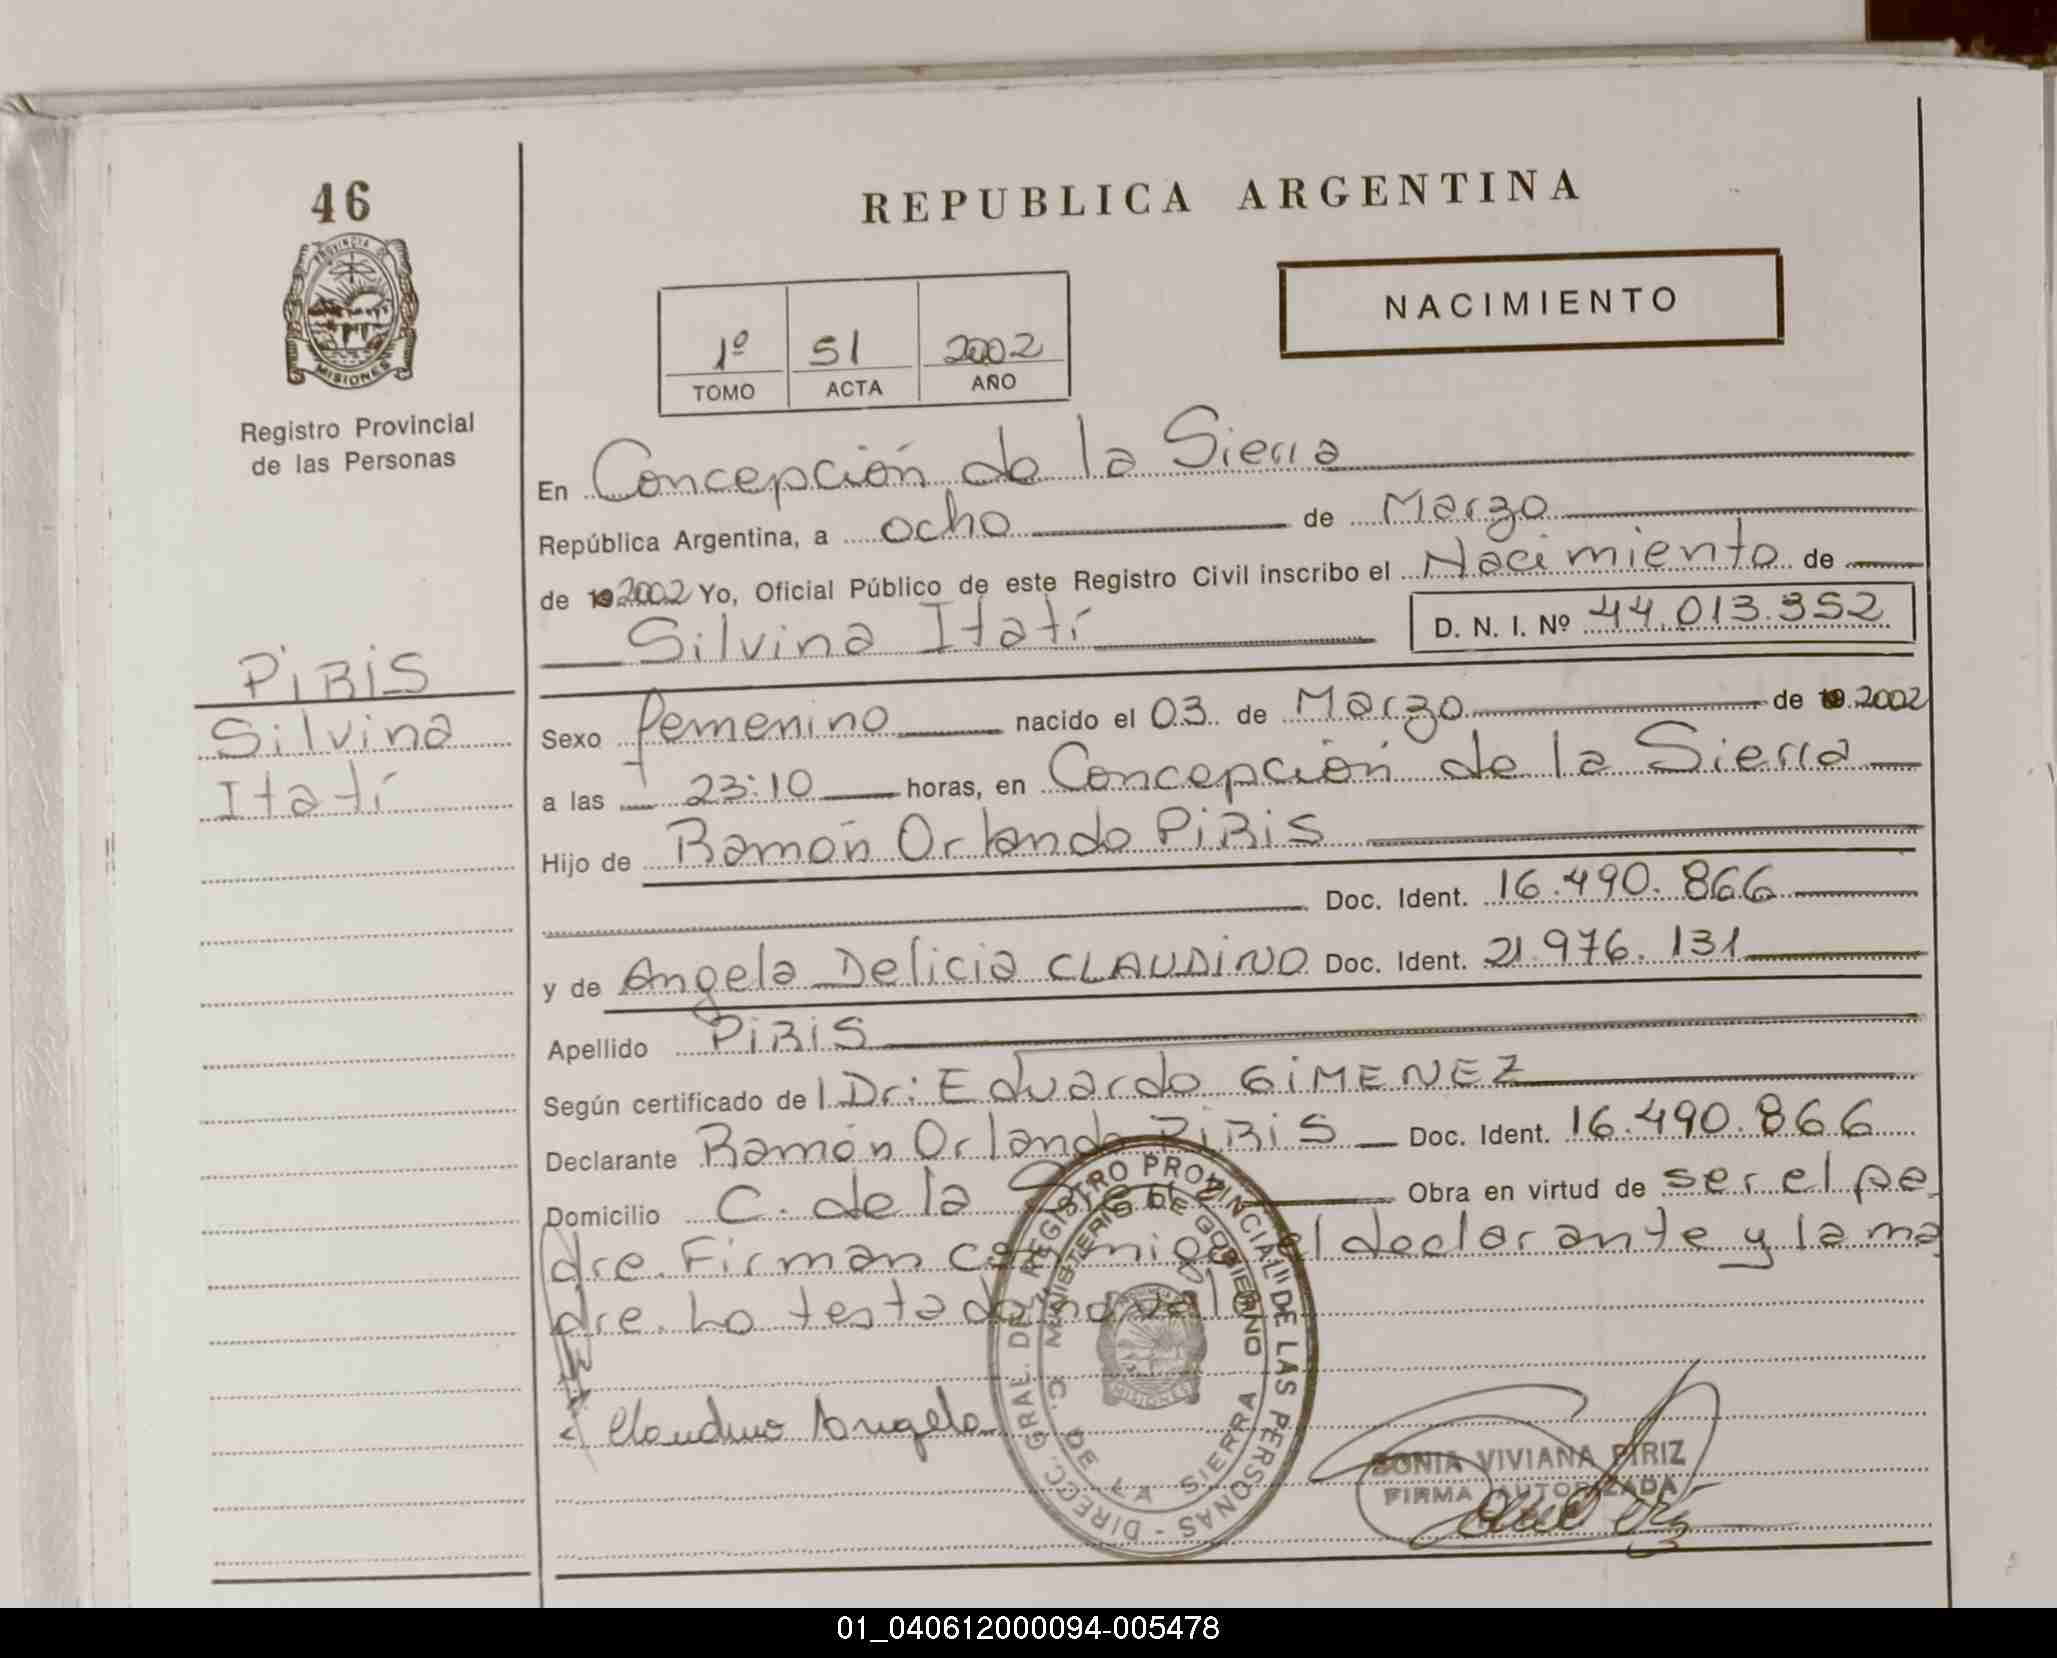 46
PROVINCIA DE
MISIONES
Registro Provincial
de las Personas
PiRiS
Silvina
Itatí
REPUBLICA ARGENTINA
NACIMIENTO
1º 51 2002
TOMO ACTA AÑO
En Concepción de la Sierra
República Argentina, a ocho de Marzo
de 2002 Yo, Oficial Público de este Registro Civil inscribo el Nacimiento de
Silvina Itatí D. N. I. Nº 44.013.352
Sexo femenino nacido el 03 de Marzo de 2002
a las 23:10 horas, en Concepción de la Sierra
Hijo de Ramón Orlando PiRiS
Doc. Ident. 16.490.866
y de Angela Delicia CLAUDiNO Doc. Ident. 21.976.131
Apellido PiRiS
Según certificado de l Dr: Eduardo GiMENEZ
Declarante Ramón Orlando PiRiS Doc. Ident. 16.490.866
Domicilio C. de la Sierra Obra en virtud de ser el pa
dre. Firman conmigo el declarante y la ma
dre. Lo testado no vale
Claudino Angela
DIRECC. GRAL. DEL REGISTRO PROVINCIAL DE LAS PERSONAS
MINISTERIO DE GOBIERNO
C. DE LA SIERRA
MISIONES
SONIA VIVIANA PIRIZ
FIRMA AUTORIZADA
01_040612000094-005478